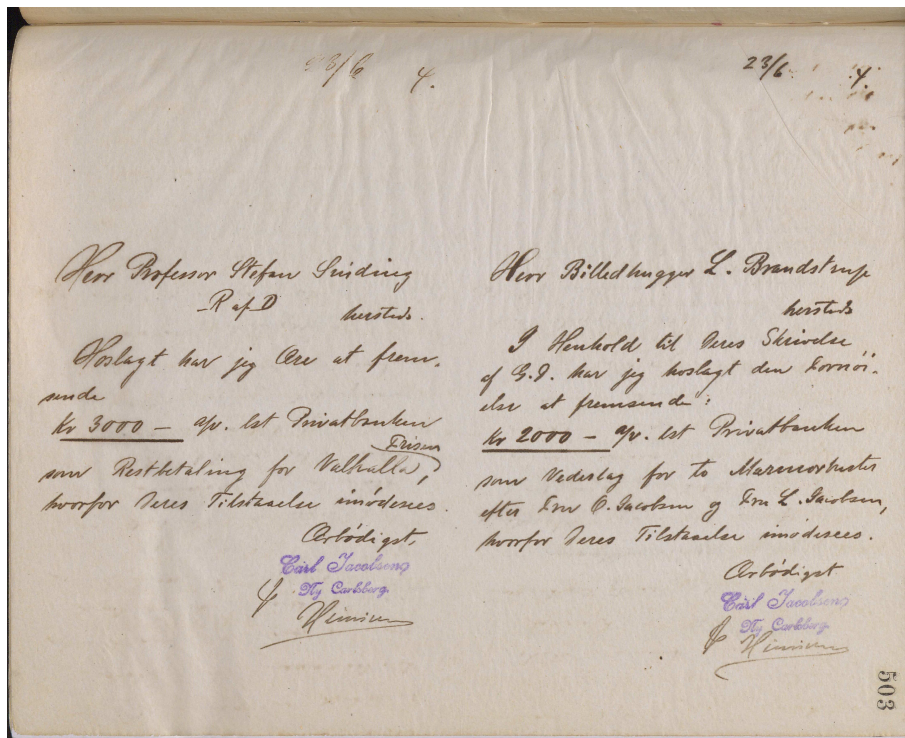 23/6 4.
Herr Professor Stefan Sinding
R af D
hersteds.
Hoslagt har jeg Ære at frem-
sende
Kr 3000 — a/v. 1st Privatbanken
Frisen
som Restbetaling for Valhalla,
hvorfor Deres Tilstaaelse imødesees.
Ærbødigst,
Carl Jacobsens
Ny Carlsberg.
23/6 4.
Herr Billedhugger L. Brandstrup
hersteds
I Henhold til Deres Skrivelse
af G.D. har jeg hoslagt den Fornöi-
else at fremsende:
Kr 2000 — a/v. 1st Privatbanken
som Vederlag for to Marmorbuster
efter Fru O. Jacobsen og Fru L. Jacobsen,
hvorfor Deres Tilstaaelse imødesees.
Ærbödigst
Carl Jacobsens
Ny Carlsberg.
503